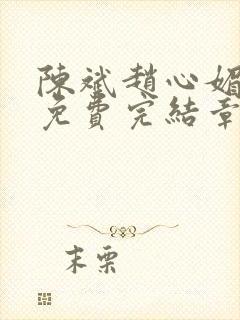 陳斌趙心媚
免費完結章
末栗